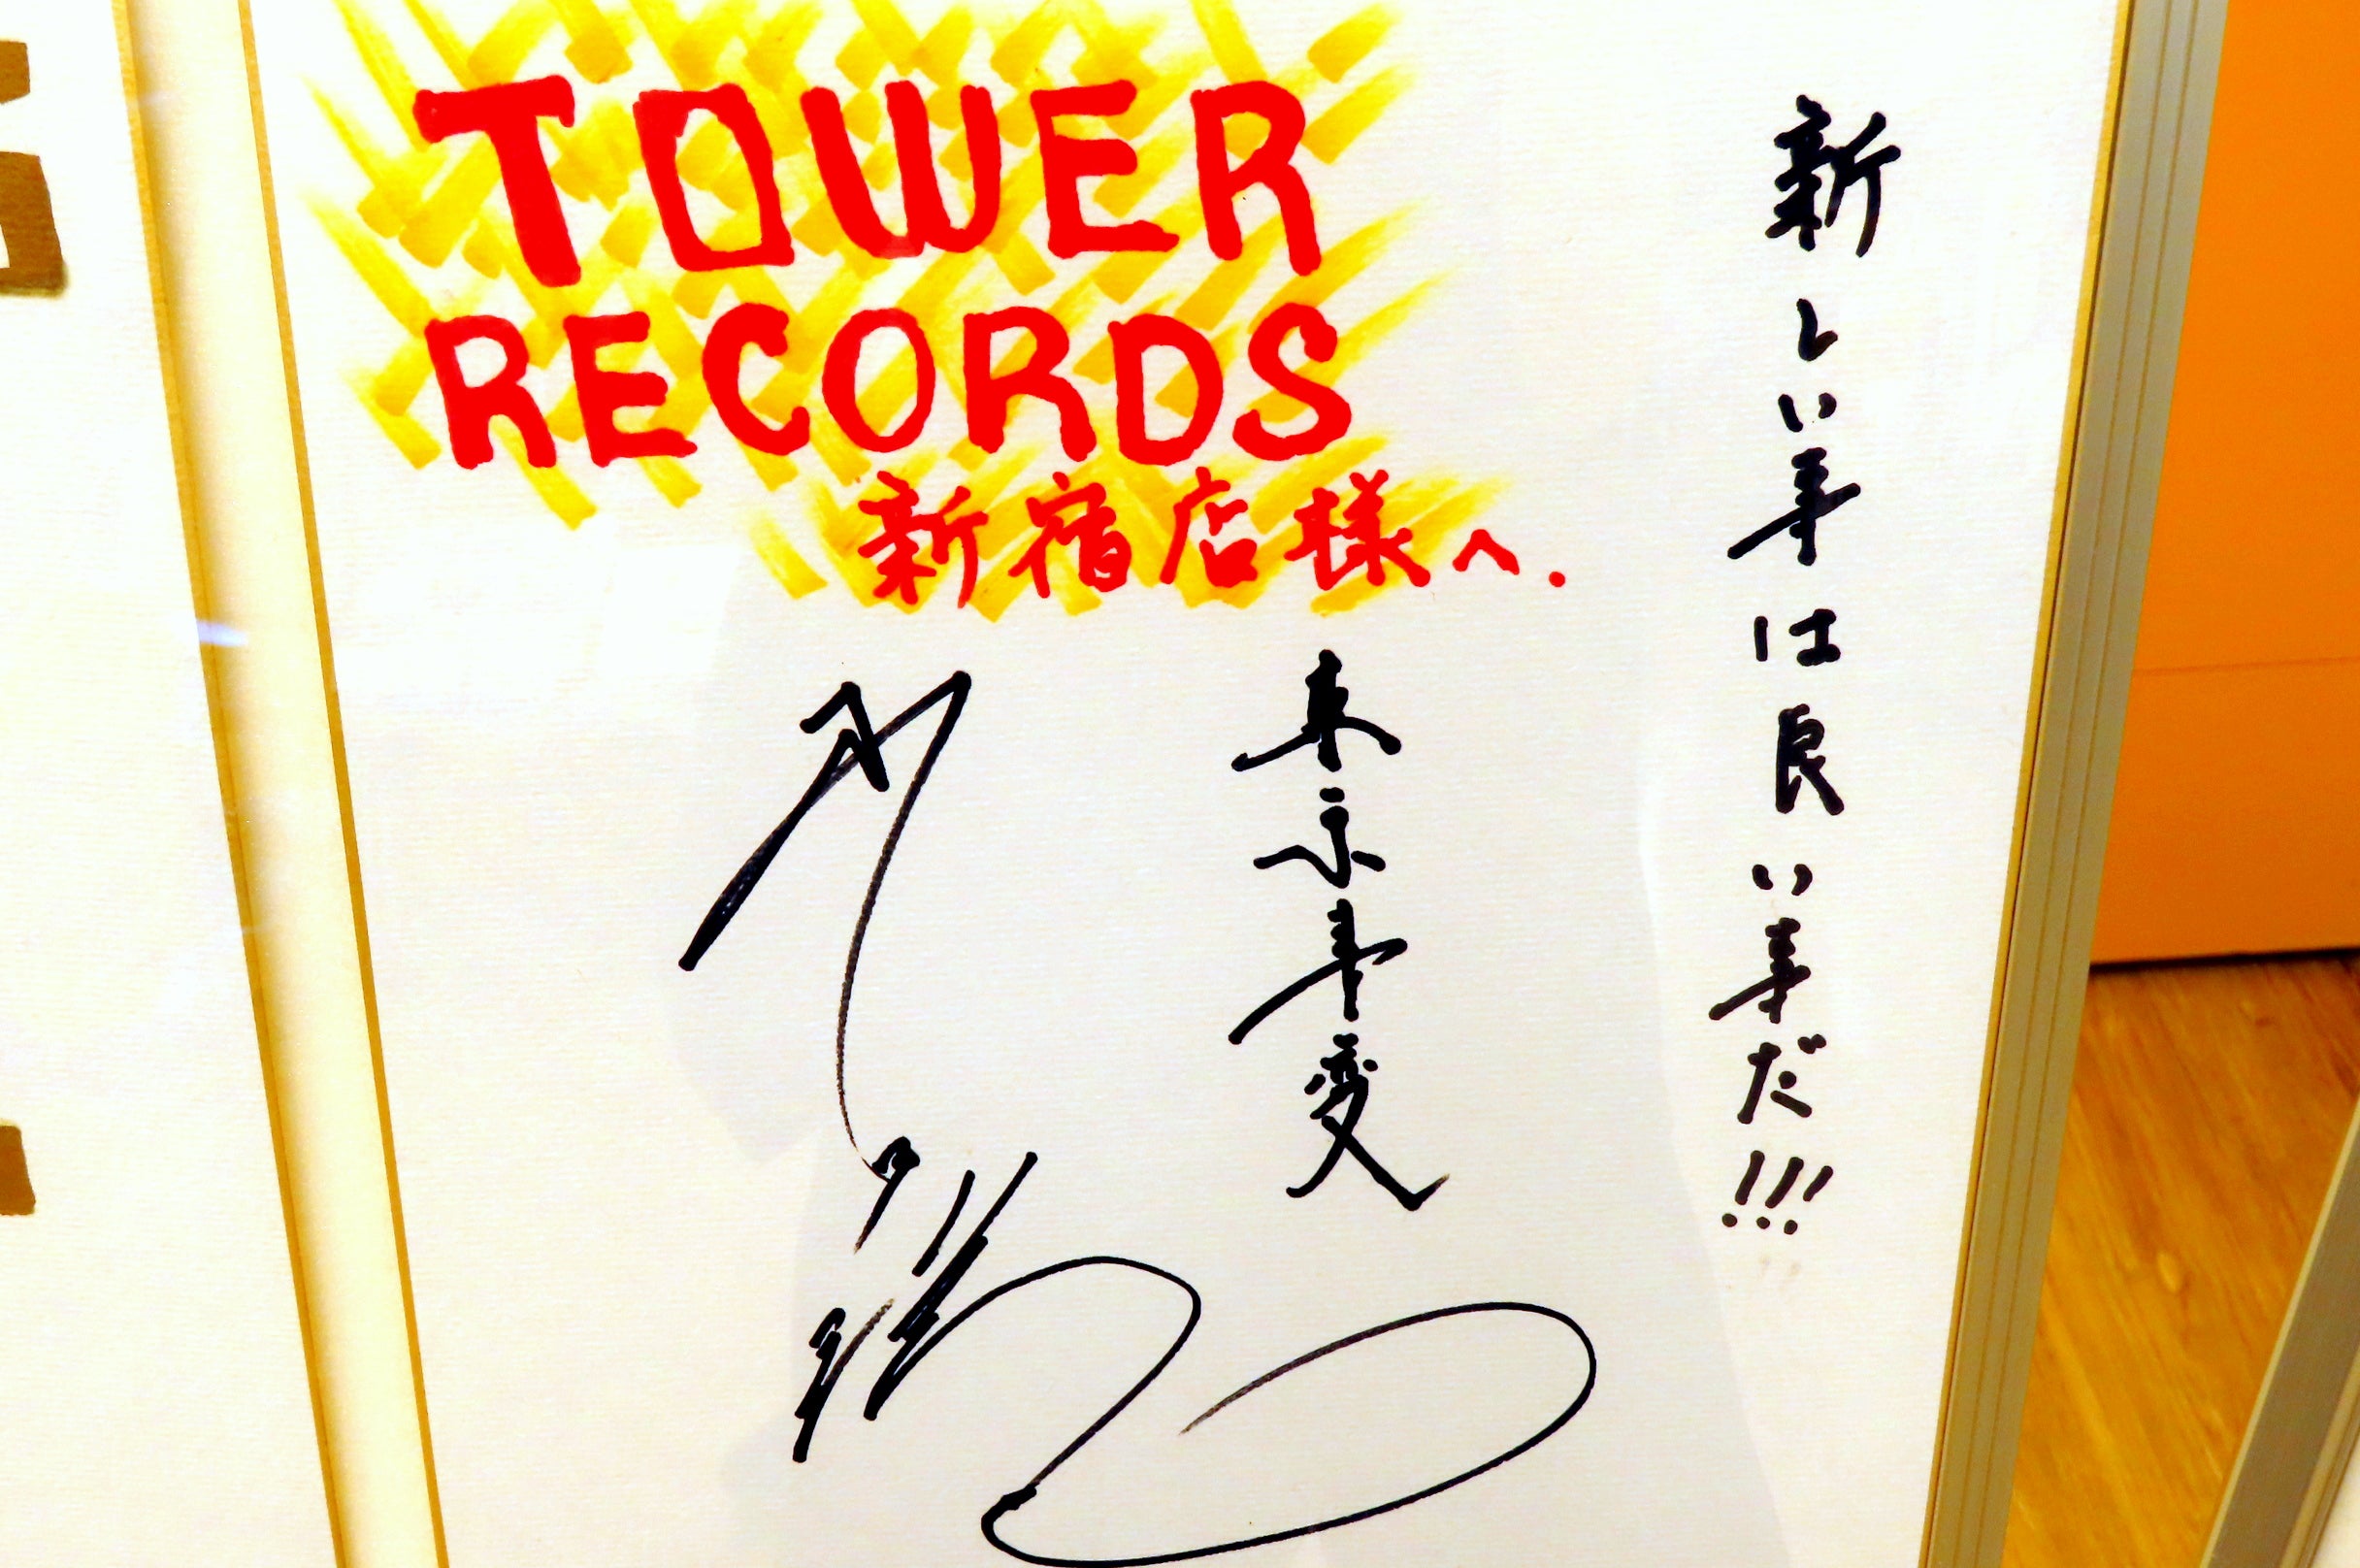 TOWER
RECORDS
新宿店様へ.
新しい事は良い事だ!!!
東京事変